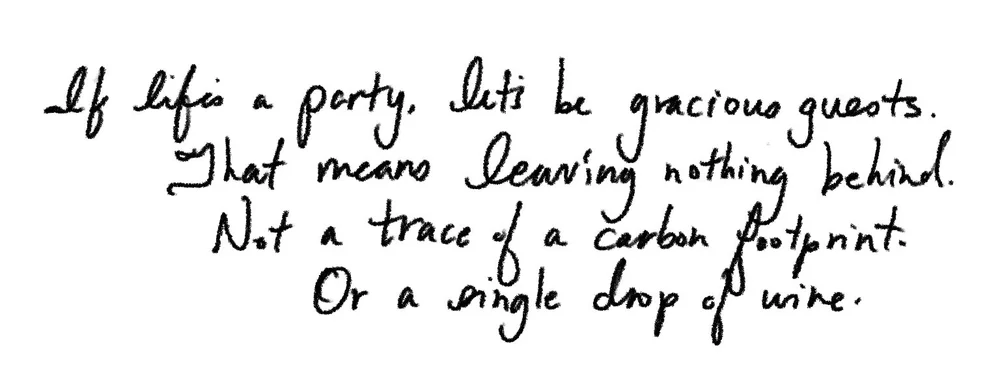 If life's a party, let's be gracious guests.
That means leaving nothing behind.
Not a trace of a carbon footprint.
Or a single drop of wine.